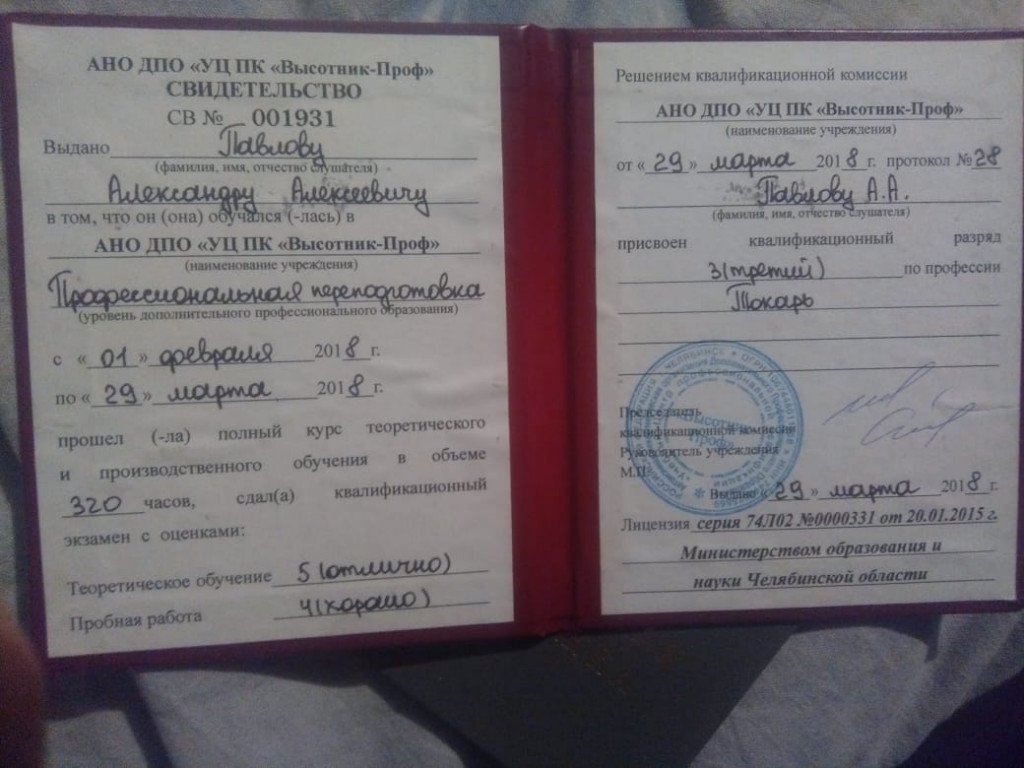 АНО ДПО «УЦ ПК «Высотник-Проф»
СВИДЕТЕЛЬСТВО
СВ № 001931
Выдано Павлову
(фамилия, имя, отчество слушателя)
Александру Алексеевичу
в том, что он (она) обучался (-лась) в
АНО ДПО «УЦ ПК «Высотник-Проф»
(наименование учреждения)
Профессиональная переподготовка
(уровень дополнительного профессионального образования)
с «01» февраля 2018 г.
по «29» марта 2018 г.
прошел (-ла) полный курс теоретического
и производственного обучения в объеме
320 часов, сдал(а) квалификационный
экзамен с оценками:
Теоретическое обучение 5 (отлично)
Пробная работа 4 (хорошо)
Решением квалификационной комиссии
АНО ДПО «УЦ ПК «Высотник-Проф»
(наименование учреждения)
от «29» марта 2018 г. протокол №28
Павлову А.А.
(фамилия, имя, отчество слушателя)
присвоен квалификационный разряд
3 (третий) по профессии
Токарь
Председатель
квалификационной комиссии
Руководитель учреждения
М.П.
Высотник
Проф»
Выдано «29» марта 2018 г.
Лицензия серия 74Л02 №0000331 от 20.01.2015 г.
Министерством образования и
науки Челябинской области